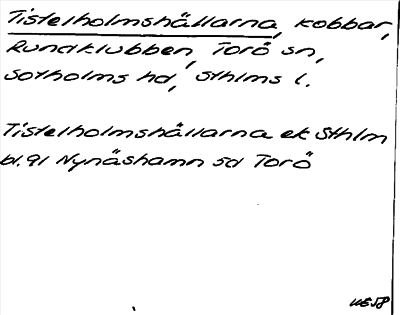 Tistelholmshällarna, kobbar,
Rundklubben, Torö sn,
Sotholms hd, Sthlms l.
Tistelholmshällarna ek Sthlm
bl. 91 Nynäshamn sd Torö